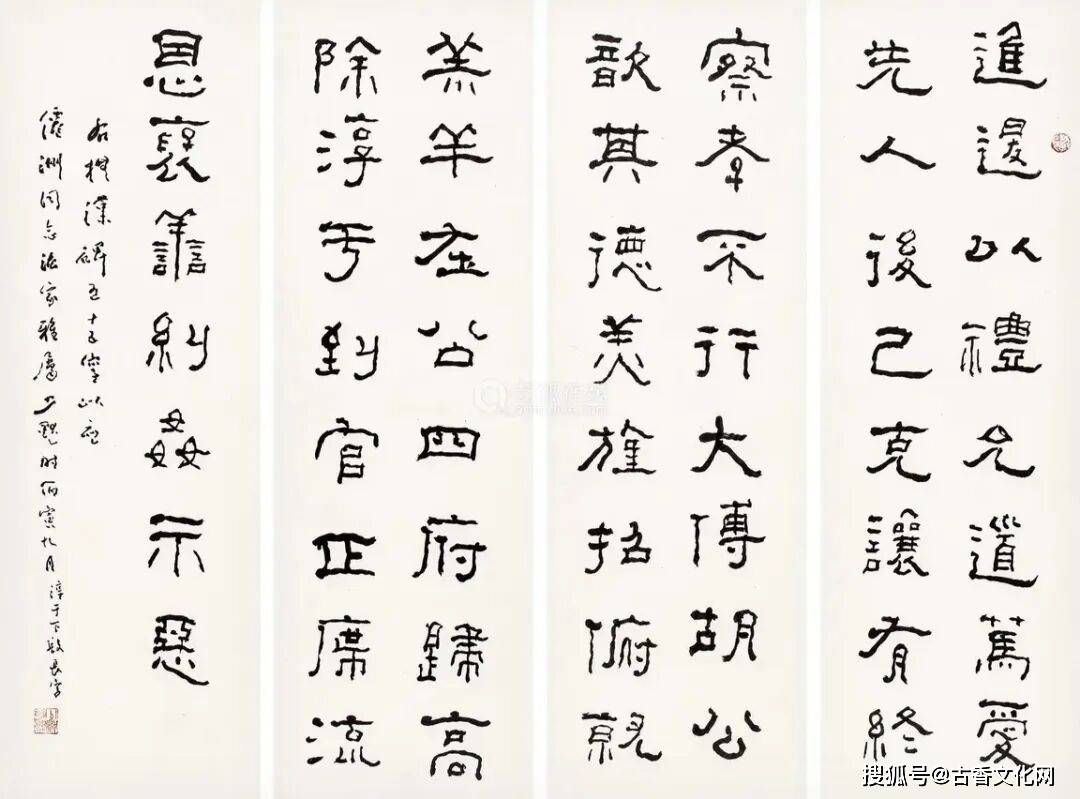 進退以禮允道篤愛
先人後己克讓有終
察孝不行大傅胡公
歆其德美旌招俯就
羔羊在公四府歸高
除淳于到官正席流
恩褒譱糾姦示惡
右橅漢碑五十五字以应
洲同志法家雅屬 时丙寅九月 淳于下敚長字
搜狐号@古香文化网